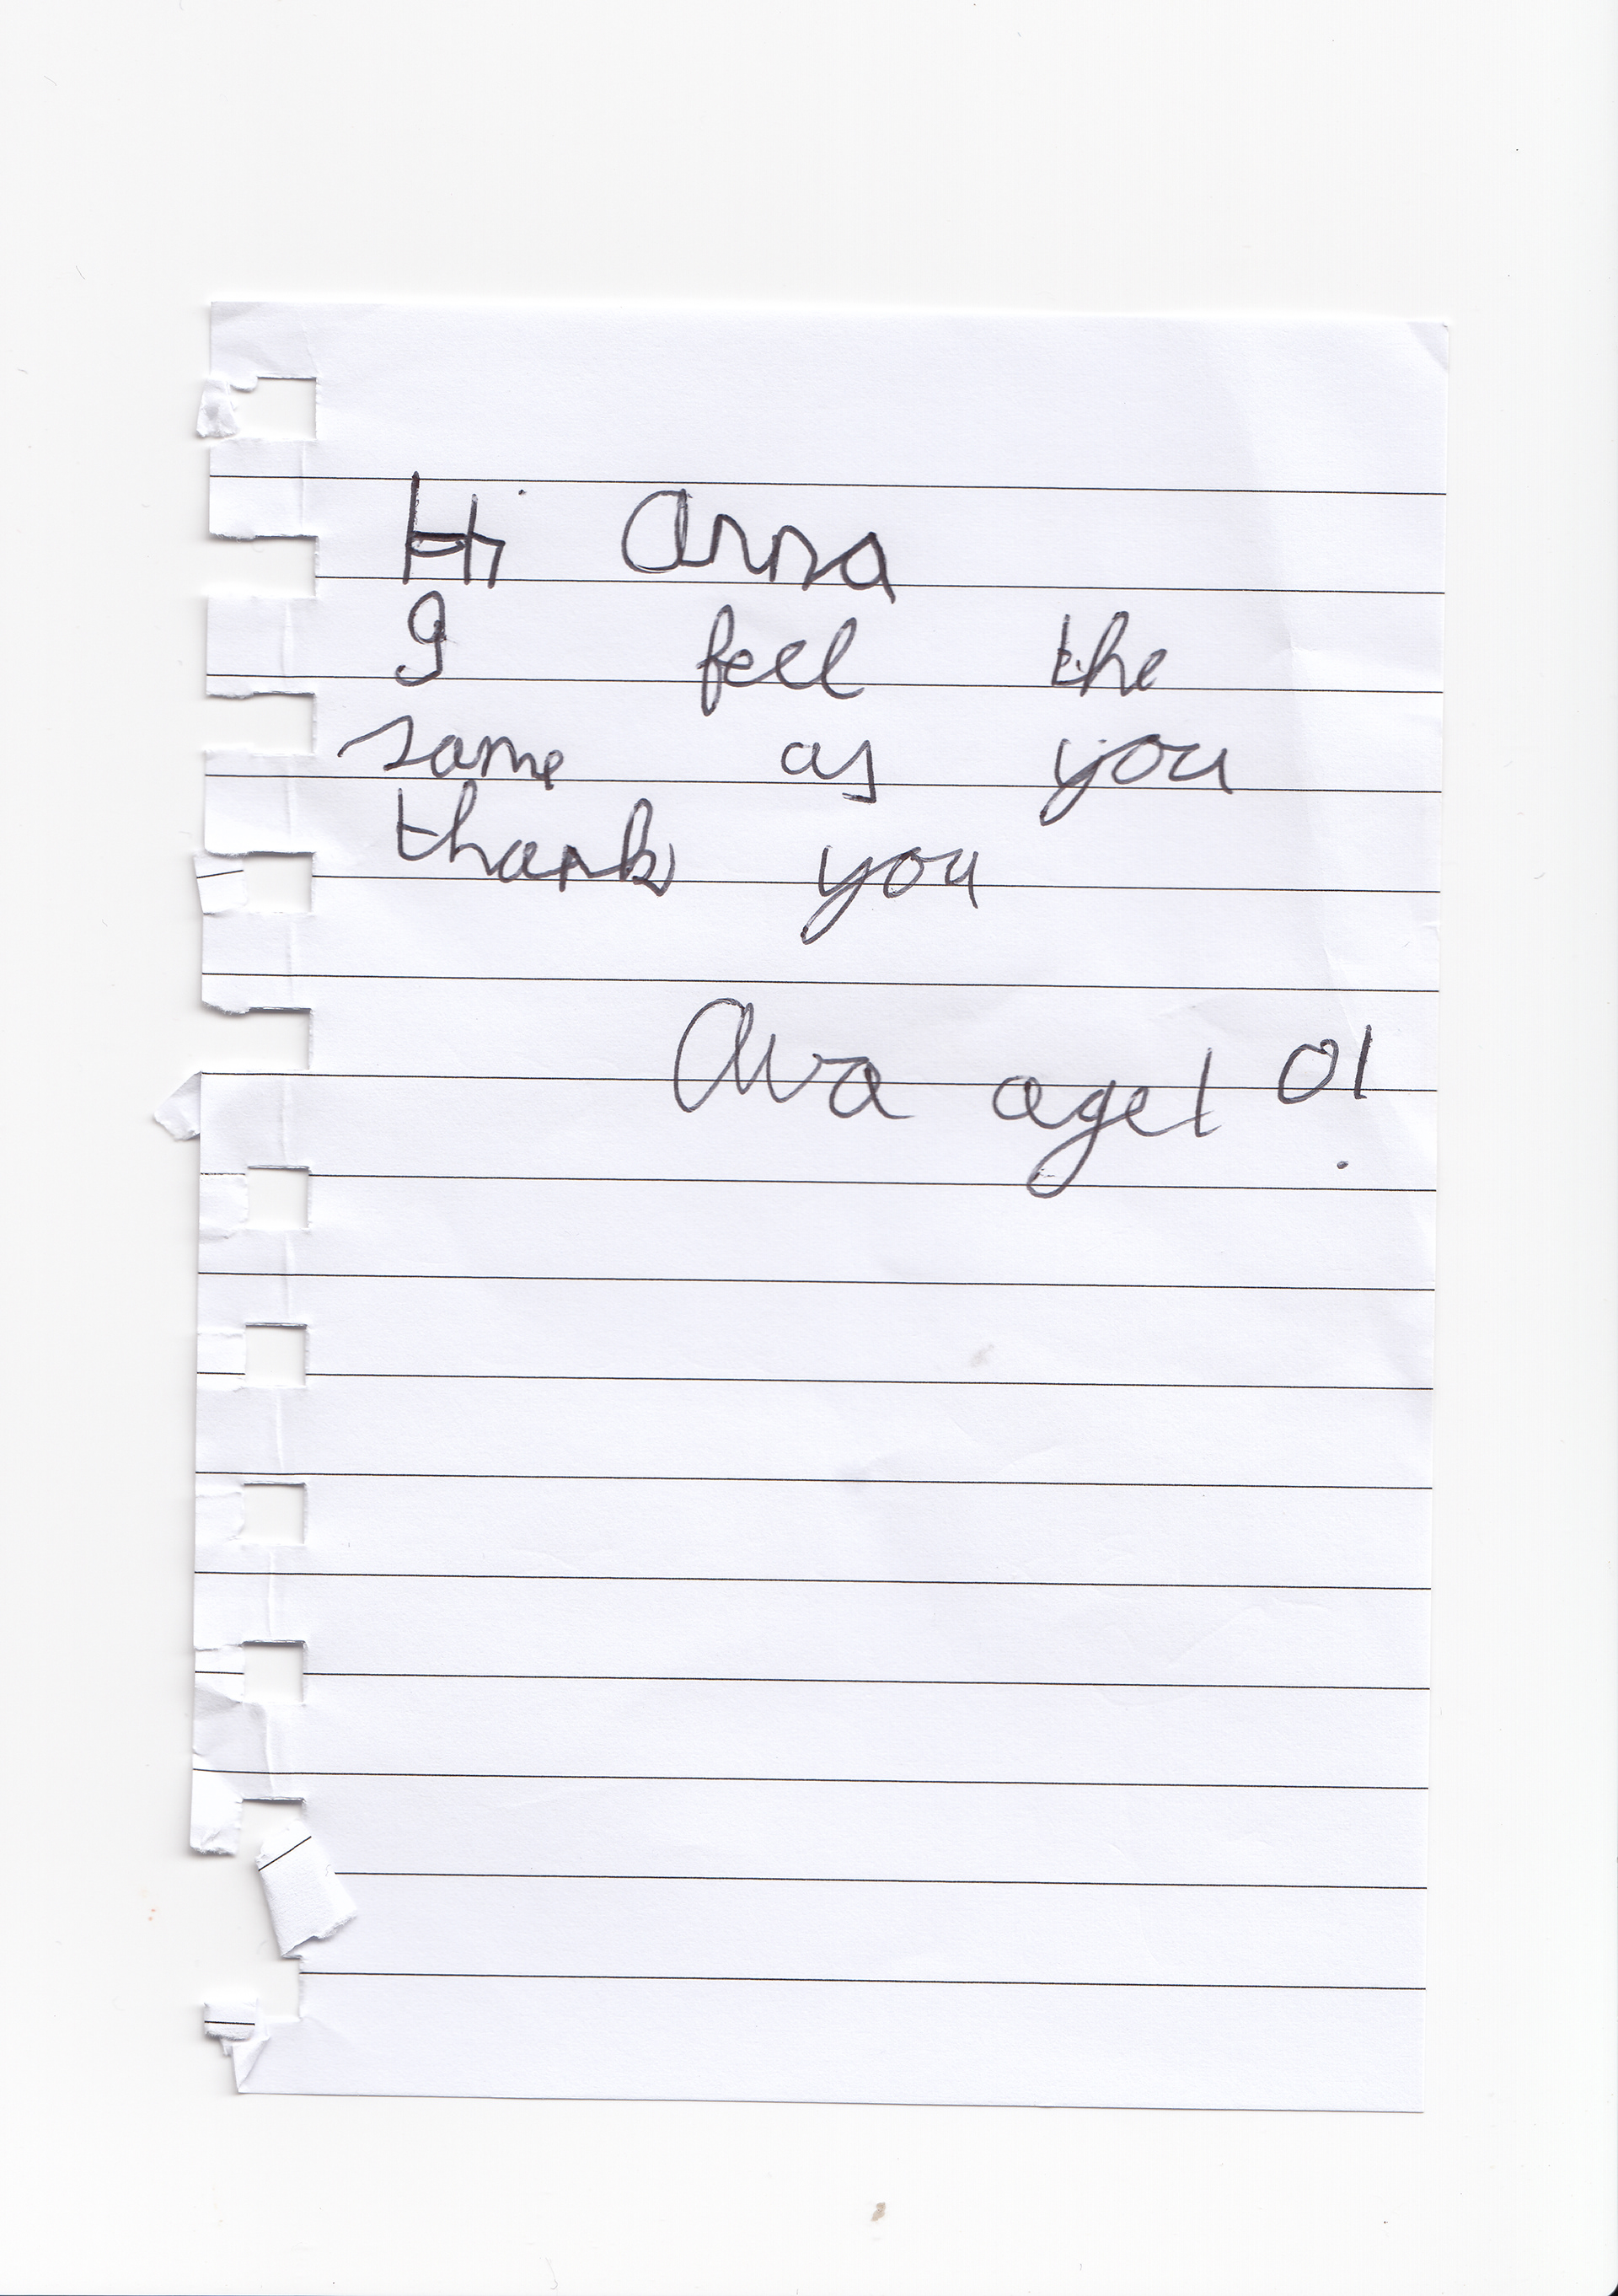 Hi Anna
I feel the
same as you
thank you
Ava age 10!